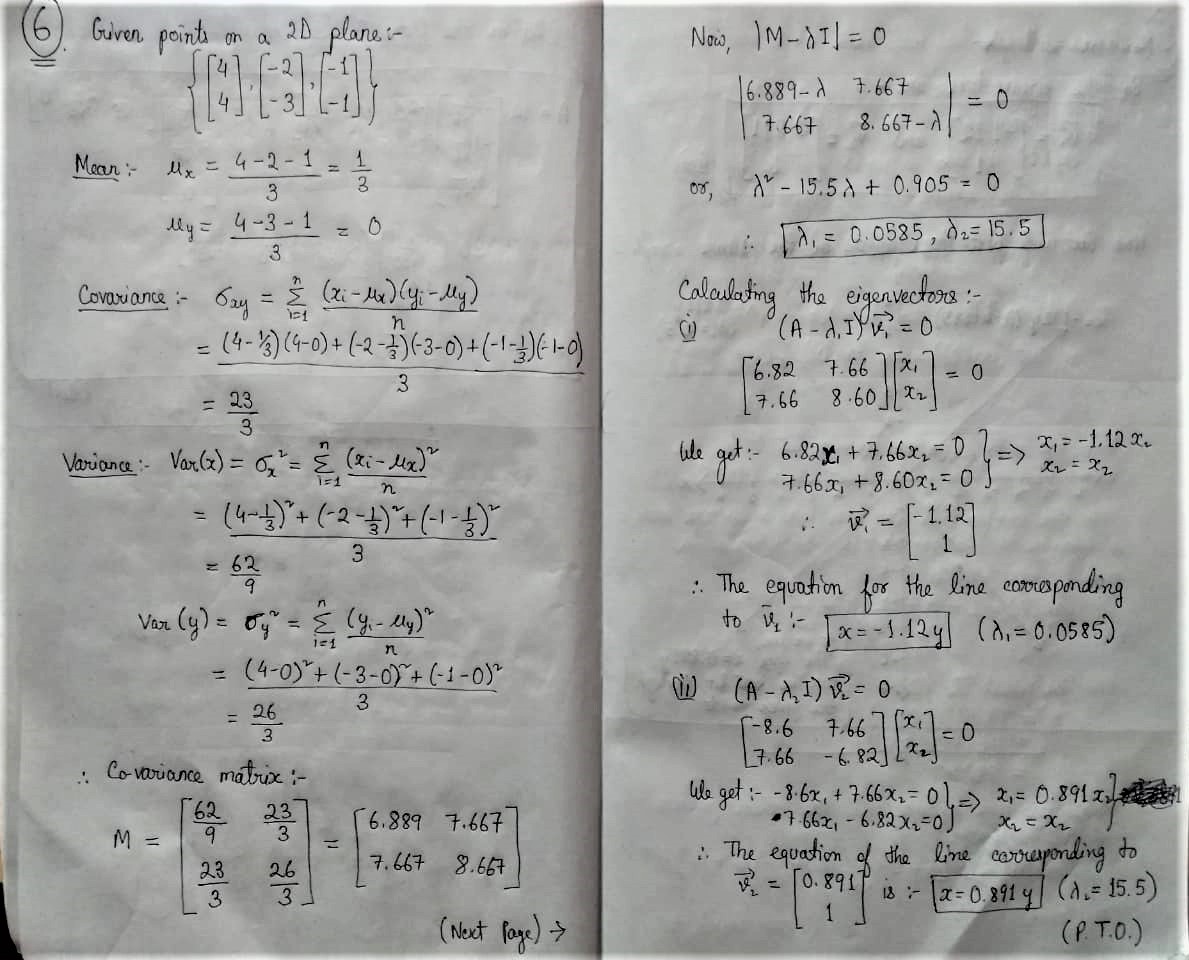 6. Given points on a 2D plane:-
{[4 4], [-2 -3], [-1 -1]}
Mean:- μx = (4-2-1)/3 = 1/3
μy = (4-3-1)/3 = 0
Covariance:- σxy = Σ_{i=1}^{n} (xi-μx)(yi-μy)/n
= ((4-1/3)(4-0)+(-2-1/3)(-3-0)+(-1-1/3)(-1-0))/3
= 23/3
Variance:- Var(x) = σx² = Σ_{i=1}^{n} (xi-μx)²/n
= ((4-1/3)²+(-2-1/3)²+(-1-1/3)²)/3
= 62/9
Var(y) = σy² = Σ_{i=1}^{n} (yi-μy)²/n
= ((4-0)²+(-3-0)²+(-1-0)²)/3
= 26/3
∴ Co-variance matrix:-
M = [62/9 23/3; 23/3 26/3] = [6.889 7.667; 7.667 8.667]
(Next Page) →
Now, |M-λI| = 0
|6.889-λ 7.667; 7.667 8.667-λ| = 0
or, λ² - 15.5λ + 0.905 = 0
∴ λ₁ = 0.0585, λ₂ = 15.5
Calculating the eigenvectors:-
(i) (A-λ₁I)v₁ = 0
[6.82 7.66; 7.66 8.60][x₁ x₂] = 0
We get:- 6.82x₁ + 7.66x₂ = 0 } => x₁ = -1.12x₂
7.66x₁ + 8.60x₂ = 0 x₂ = x₂
∴ v₁ = [-1.12 1]
∴ The equation for the line corresponding
to v₁:- x = -1.12y (λ₁ = 0.0585)
(ii) (A-λ₂I)v₂ = 0
[-8.6 7.66; 7.66 -6.82][x₁ x₂] = 0
We get:- -8.6x₁ + 7.66x₂ = 0 } => x₁ = 0.891x₂ }
7.66x₁ - 6.82x₂ = 0 x₂ = x₂
∴ The equation of the line corresponding to
v₂ = [0.891 1] is:- x = 0.891y (λ₂ = 15.5)
(P.T.O.)